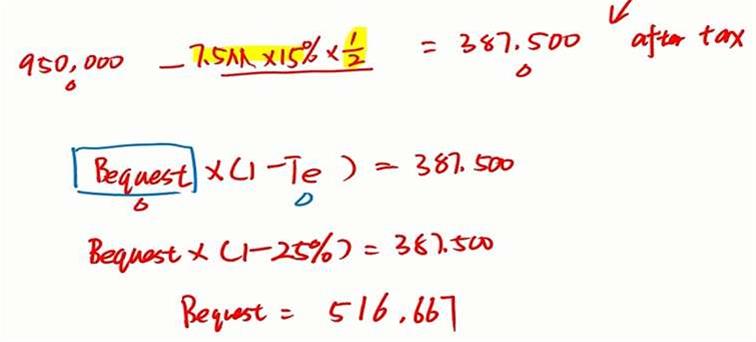 950,000 - 7.5M × 15% × 1/2 = 387.500 after tax
Bequest × (1 - Te) = 387.500
Bequest × (1 - 25%) = 387.500
Bequest = 516.667